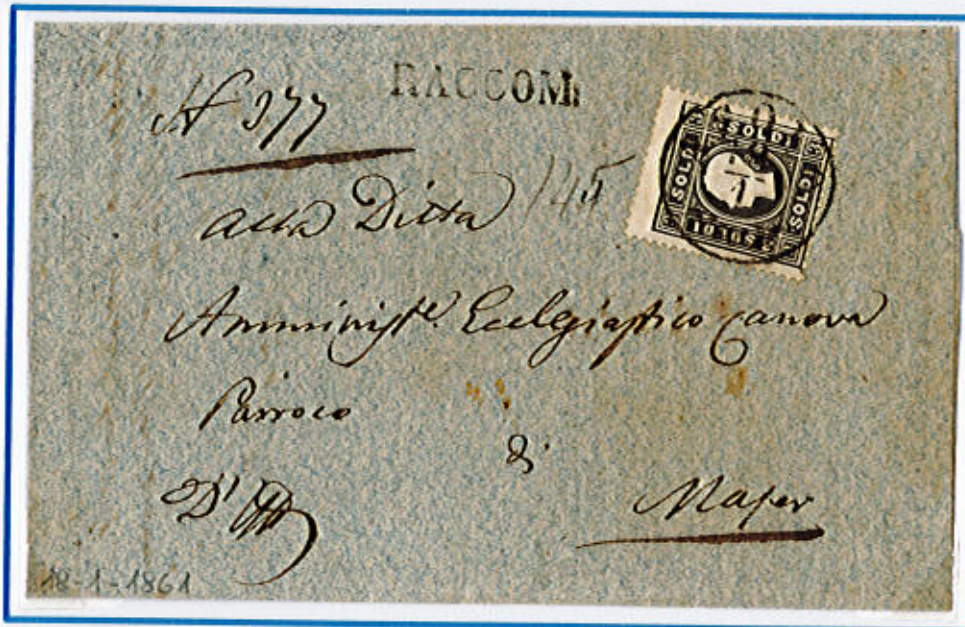 RACCOM:
N° 377
145
SOLDI
SOLDI
10 SOLDI
10 SOLDI
alla Ditta
Amministre. Ecclgiastico Canova
Parroco
di
Maser
D'
18-1-1861